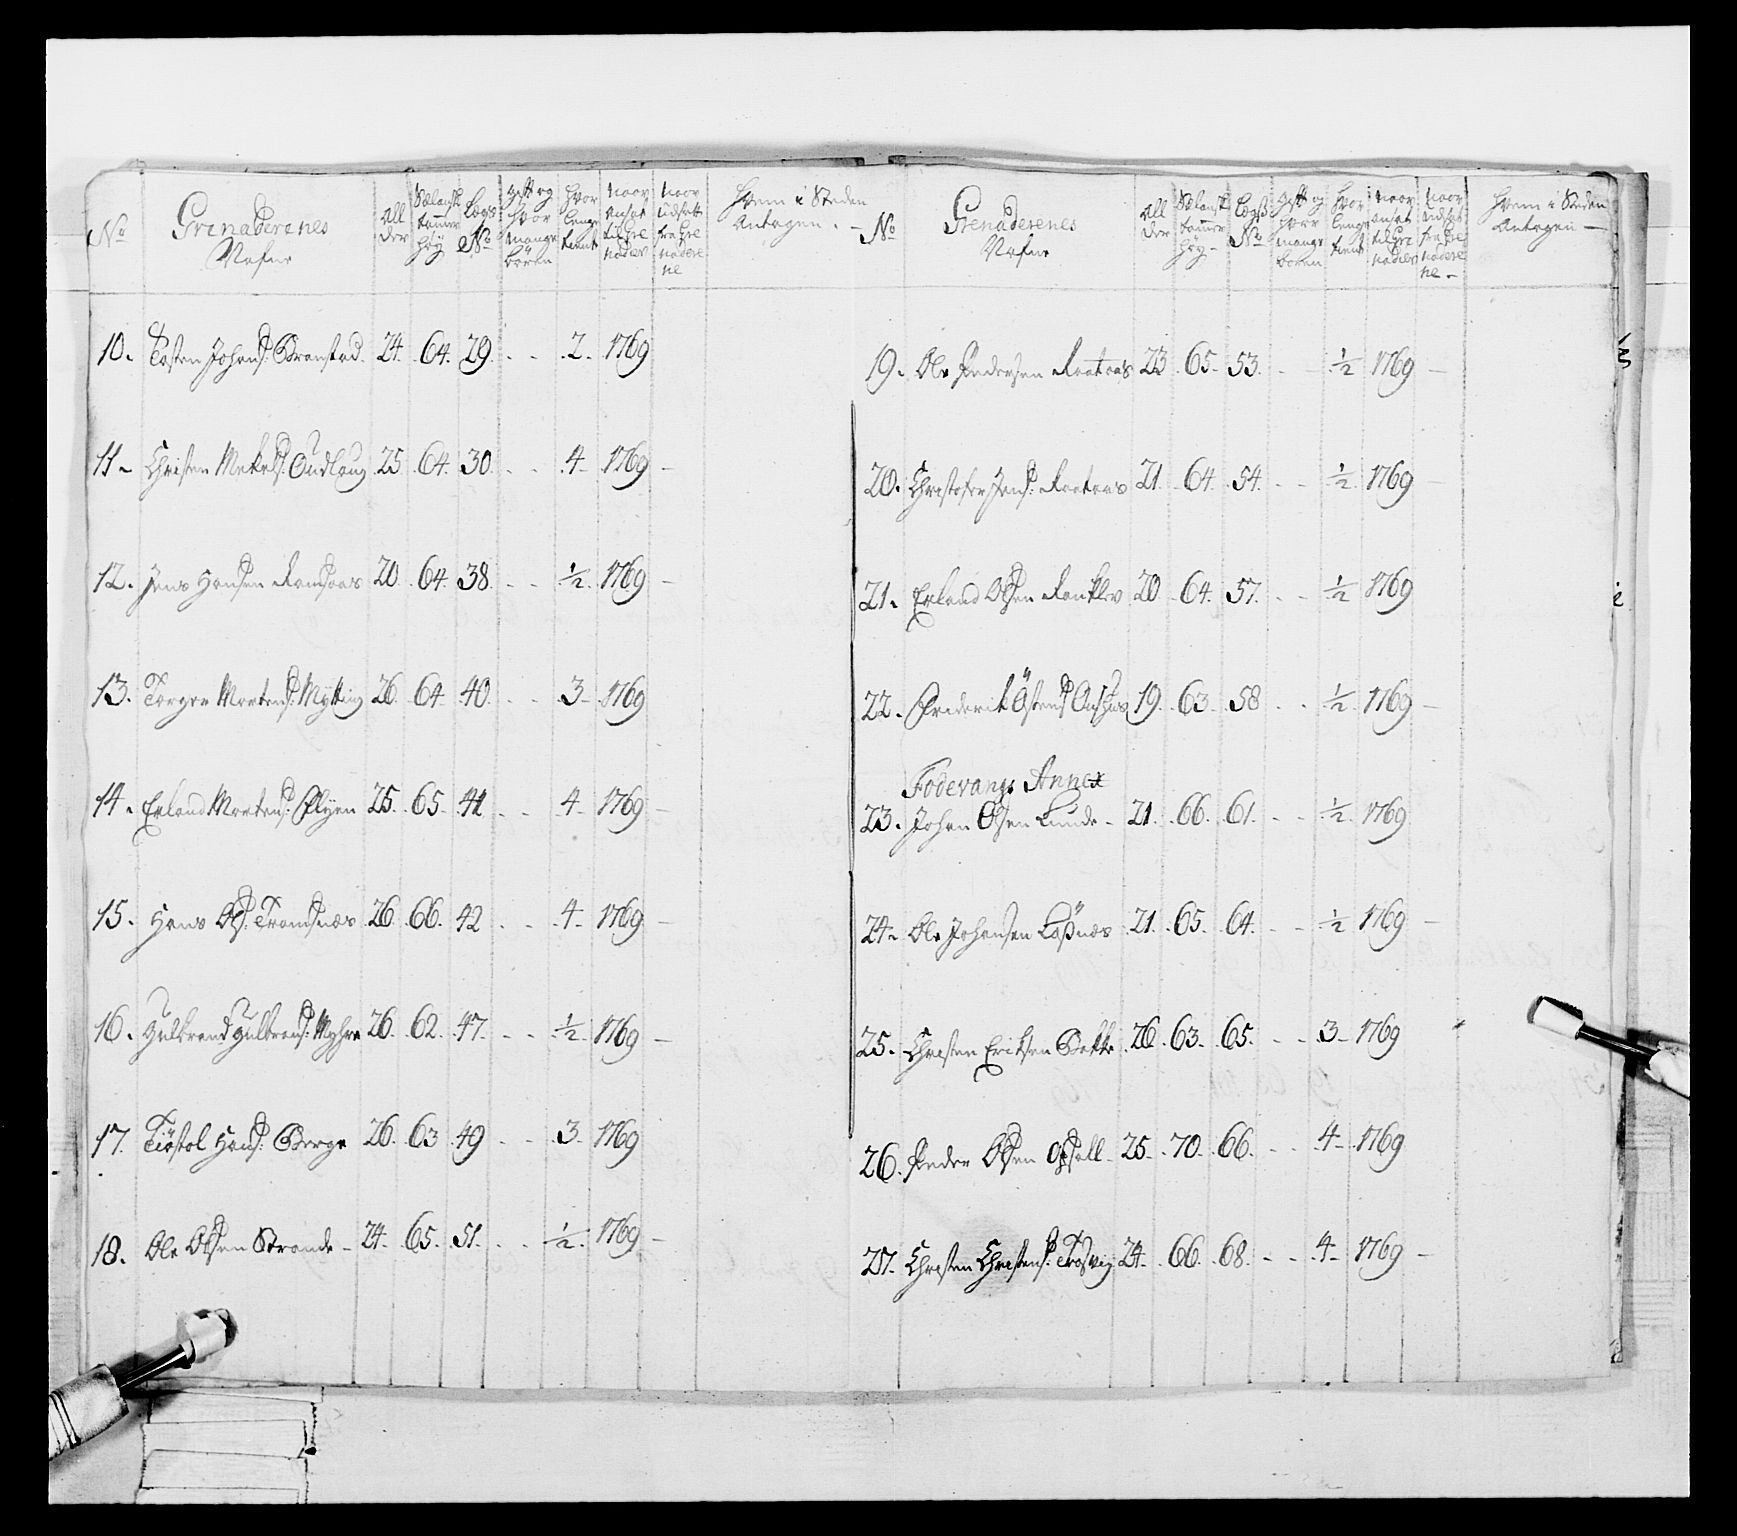 No
Grenaderenes
Nafne
All
der
Sælansk
tommer
høy
Lægs
No
gift og
hvor
mange
børen
hvor
lenge
tient
naar
ansat
til Gre
nadier
naar
udsatt
fra Gre
nadere
ne
hvem i Steden
Antagen. -
10. Tosten Johans: Branstad. 24. 64. 29. - - 2. 1769
11. Christen Mekels: 25. 64. 30. - - 4. 1769 -
12. Jens Hansen Ramsaas 20. 64. 38. - - ½. 1769 -
13. Torger Mortens: Mytting 26. 64. 40. - - 3. 1769
14. Erland Mortens: Plyen 25. 65. 41. - - 4. 1769 -
15. Hans Ols: Tromsnæs 26. 66. 42. - - 4. 1769 -
16. Gulbrand Gulbrans: Myhre 26. 62. 47. - - ½. 1769 -
17. Tiøstol Hans: Berge 26. 63. 49. - - 3. 1769
18. Ole Olsen Strande - 24. 65. 51. - - ½. 1769 -
No
Grenaderenes
Nafne
All
der
Sælansk
tommer
høy -
Lægs
No
gift og
hvor
mange
børen
hvor
lenge
tient
naar
ansat
til Gre
nadier
naar
udsat
fra Gre
nadere
ne -
hvem i Steden
Antagen -
19. Ole Pedersen 23. 65. 53. - - ½ 1769 -
20. Christofer Jens: 21. 64. 54. - - ½. 1769 -
21. Erland Olsen Ranklev 20. 64. 57. - - ½ 1769
22. Frederik Østens: 19. 63. 58 - - ½. 1769 -
Fodevangs Annex
23. Johan Olsen Lunde - 21. 66. 61. - - ½. 1769
24. Ole Johansen Løsnæs 21. 65. 64. - - ½ 1769 -
25. Christen Eriksen Bakke 26. 63. 65. - - 3 - 1769
26. Peder Olsen Opsall - 25. 70. 66. - - 4 - 1769
27. Christen Christens: Trosvig 24. 66. 68. - - 4 - 1769 -